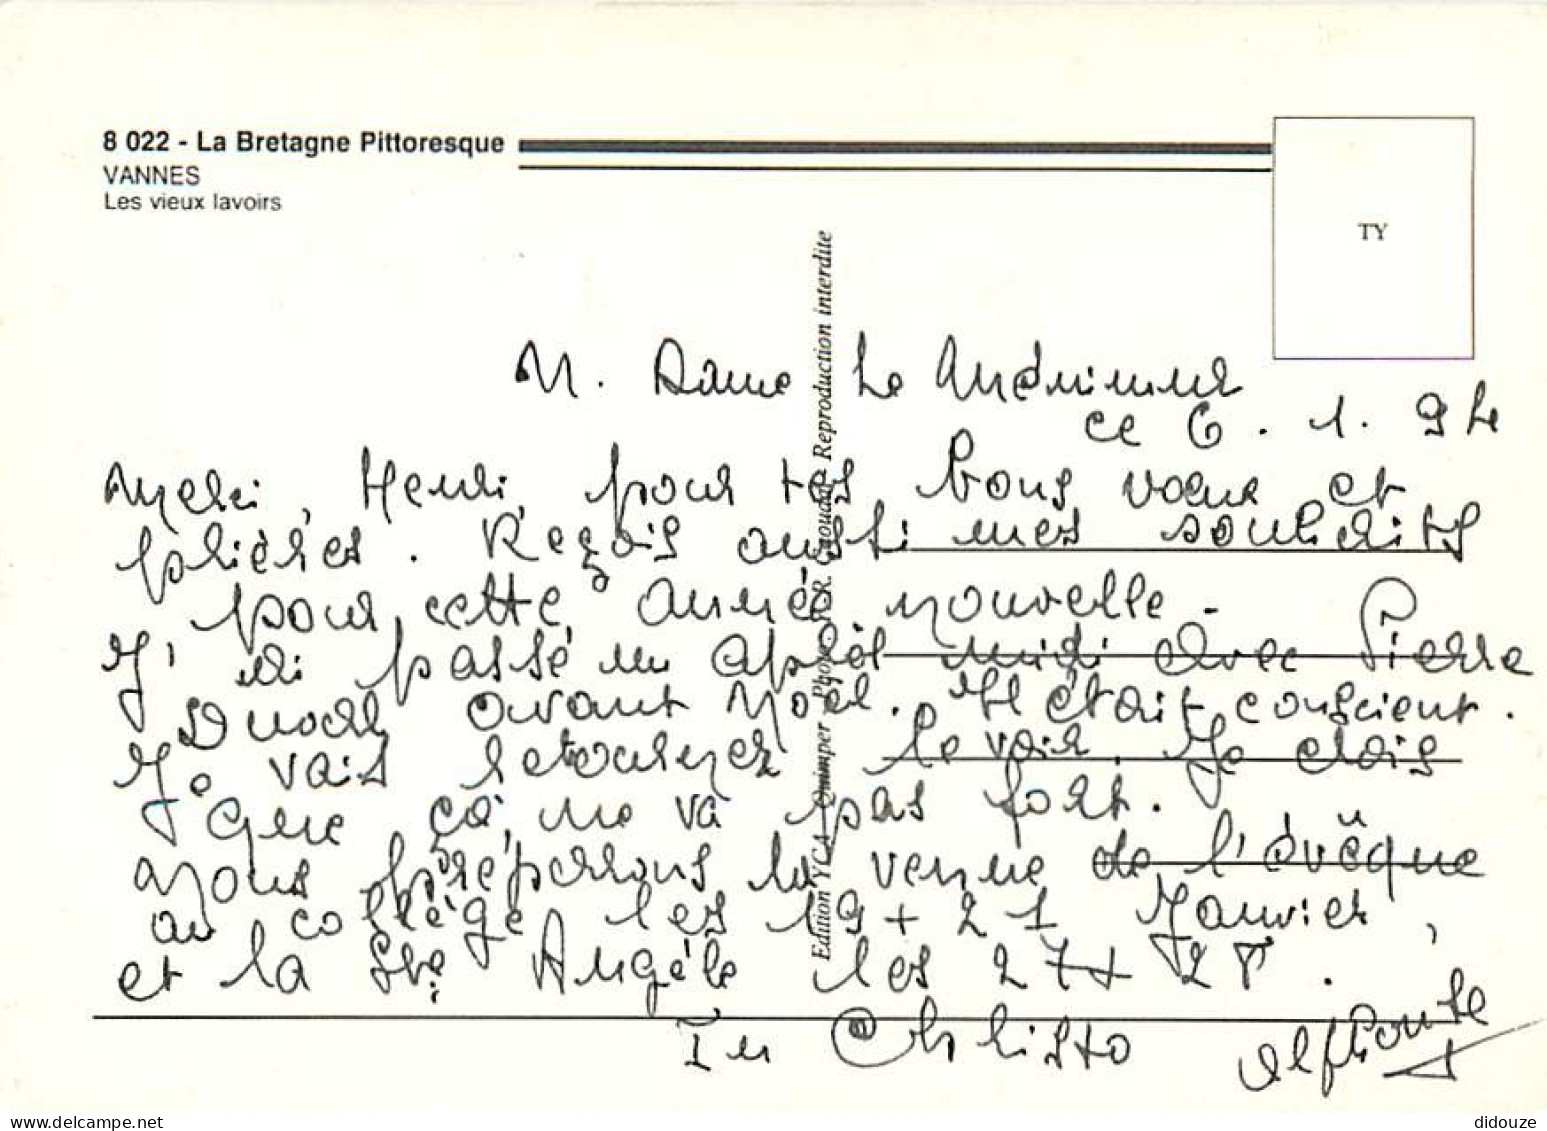 8 022 - La Bretagne Pittoresque
VANNES
Les vieux lavoirs
TY
Edition YCA Quimper - Photo R. Gnouddt Reproduction interdite
N. Dame Le
ce 6. 1. 94
Merci, Henri, pour tes bons vœux et
prières. Reçois aussi mes souhaits
pour cette année nouvelle.
J'ai passé un après midi avec Pierre
avant Noël. Il était conscient.
Je vais retourner le voir. Je crois
que çà, ne va pas fort.
Nous préparons la venue de l'évêque
au collège les 19 + 21 Janvier,
et la Ste Angèle les 27 + 28.
In Christo Alphonse
didouze